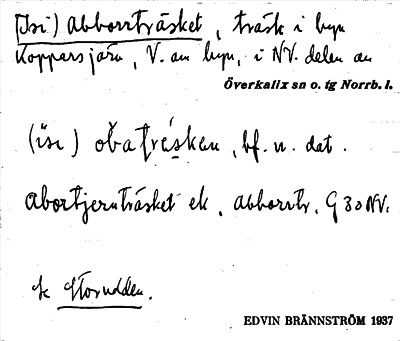 (Isi) Abborrträsket, träsk i byn
Koppersjärn, V. om byn, i NV. delen av
Överkalix sn o. tg Norrb. l.
(isi) obatráskau, bf. n. dat.
Abortjernträsket ek, Abborrtr. G 30 NV.
Storudden.
EDVIN BRÄNNSTRÖM 1937